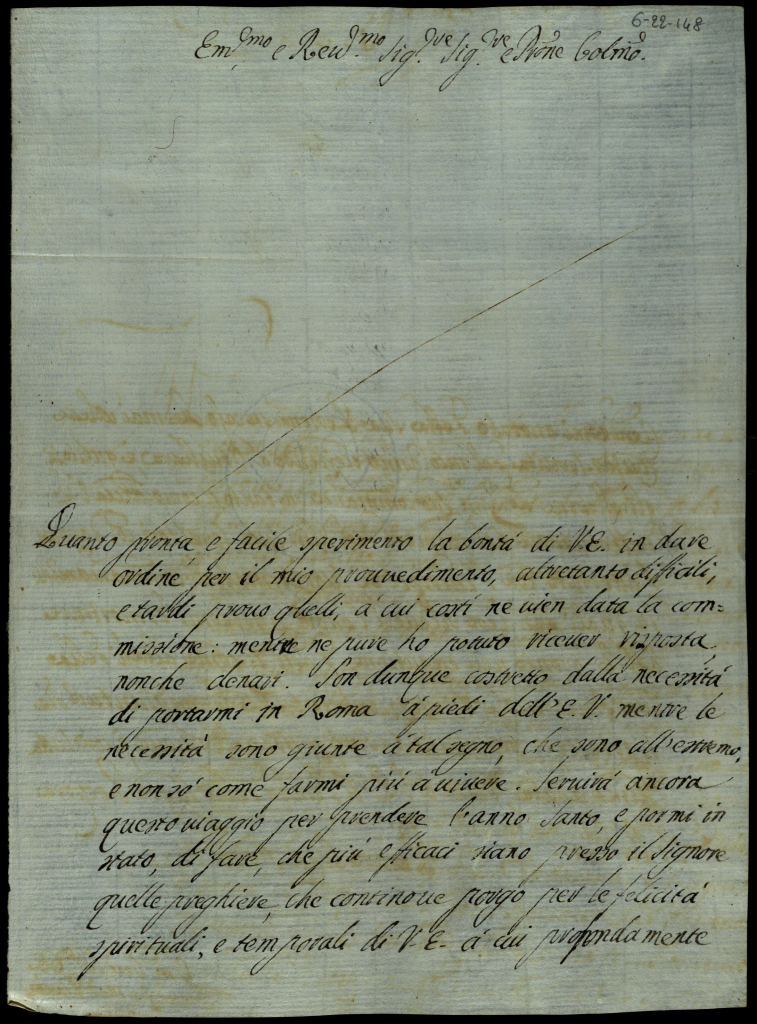 6-22-148
Em.mo e Reu.mo Sig.re Sig.re e Prone Colmo.
Quanto pronta, e facile sperimento la bontá di V.E. in dare
ordine per il mio prouuedimento, altretanto difficili,
e tardi prouo quelli, á cui costí ne vien data la com=
missione: mentre ne pure ho potuto riceuer risposta,
nonche denari. Son dunque costretto dalla necessitá
di portarmi in Roma á piedi dell'E.V. mentre le
necessitá sono giunte á tal segno, che sono all'estremo,
e non só come farmi piú á viuere. Seruirá ancora
questo viaggio per prendere l'anno Santo, e pormi in
stato, di fare, che piú efficaci siano presso il Signore
quelle preghiere, che continoue porgo per le felicitá
spirituali, e temporali di V.E. á cui profondamente